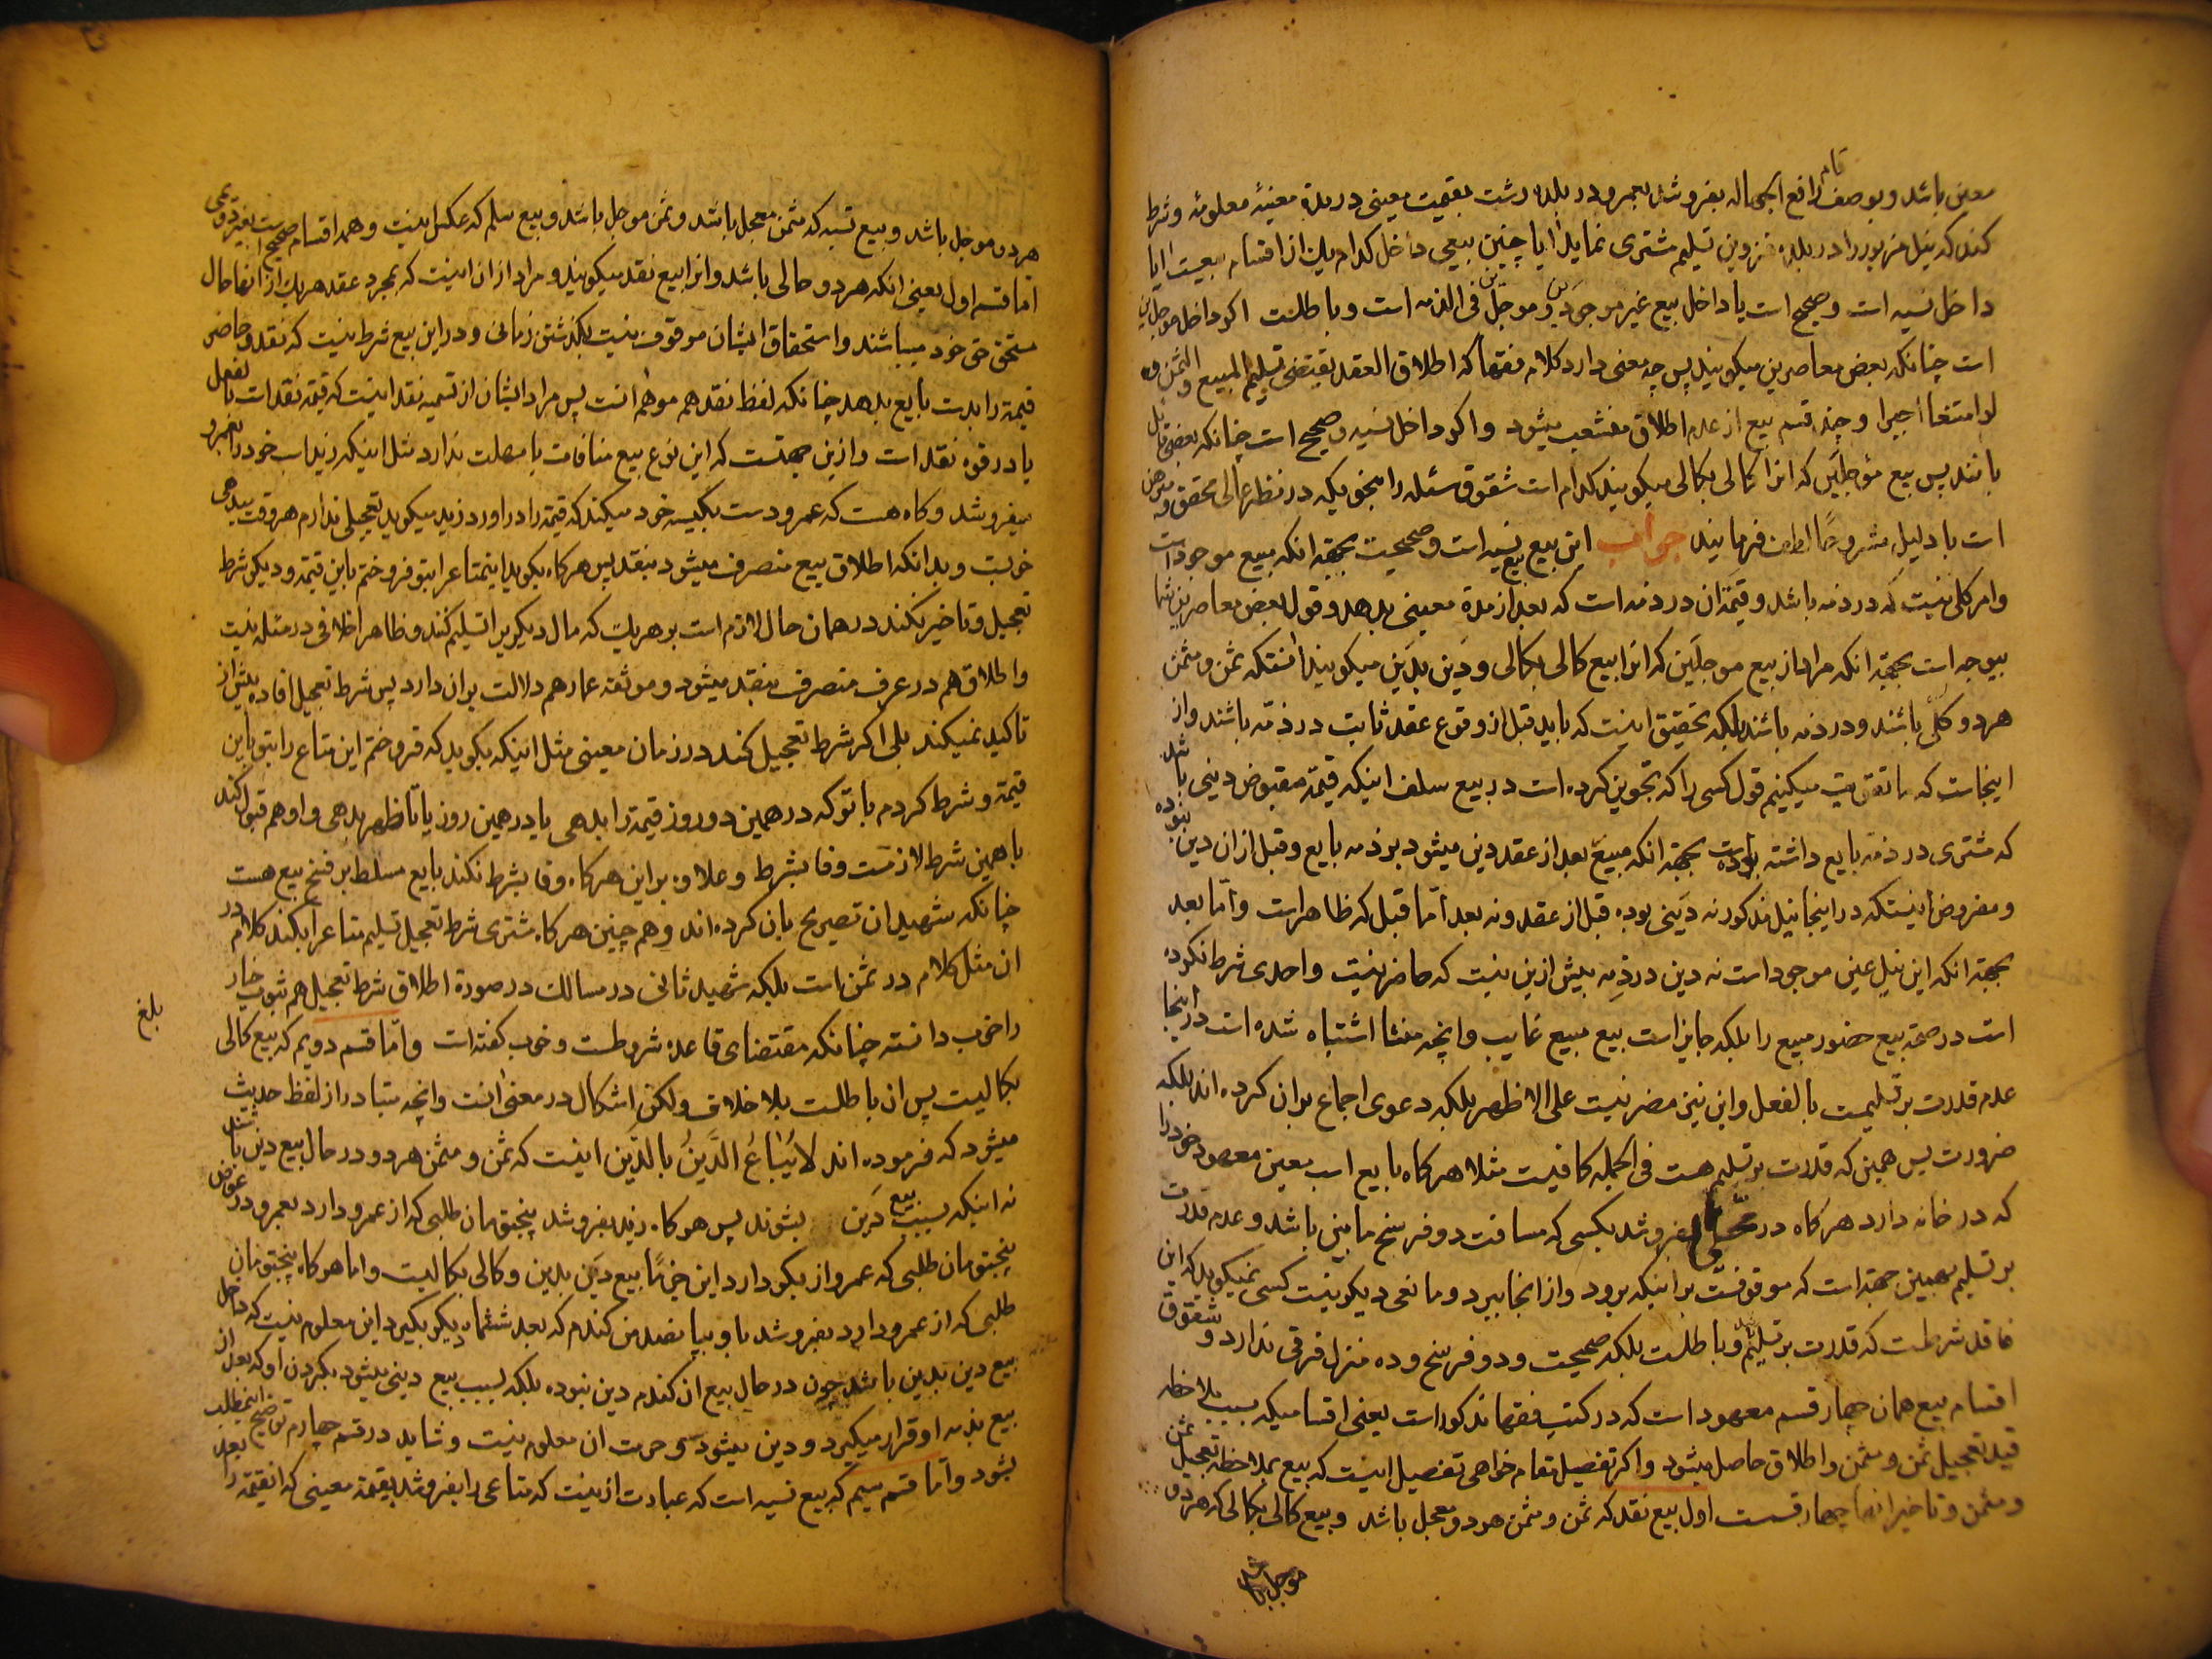 معین باشد و بوصف رافع الجهاله بفروشد بعمرو در بلده رشت بقیمت معینی در مدة معینهٔ معلومه و شرط
کند که نیل مزبور را در بلده قزوین تسلیم مشتری نماید ایا چنین بیعی داخل کدام یك از اقسام بیعست ایا
داخل نسیه است و صحیح است یا داخل بیع غیر موجودین و مؤجلین فی الذمه است و باطلست اکر داخل مؤجلین
است چنانکه بعض معاصرین میکویند پس چه معنی دارد کلام فقها که اطلاق العقد یقتضی تسلیم المبیع و الثمن و
لو امتنعا اجبرا و چند قسم بیع از عدم اطلاق منشعب میشود و اکر داخل نسیه و صحیح است چنانکه بعضی قایل
باشند پس بیع مؤجلین که انرا کالی بکالی میکویند کدام است شقوق مسئله را بنحویکه در نظر عالی محقق و مبرهن
است با دلیل مشروحًا لطف فرمایند جواب این بیع بیع نسیه است و صحیحست بجهة انکه مبیع موجود است
و امر کلی نیست که در ذمه باشد و قیمة ان در ذمه است که بعد از مدة معینی بدهد و قول بعض معاصرین شما
بیوجه است بجهة انکه مراد از بیع موجلین که انرا بیع کالی بکالی و دَین بدَین میکویند انستکه ثمن و مثمن
هر دو کلی باشند و در ذمه باشند بلکه تحقیق اینست که باید قبل از وقوع عقد ثابت در ذمه باشند و از
اینجاست که ما تقویت میکنیم قول کسی را که تجویز کرده است در بیع سلف اینکه قیمة مقبوض دینی باشد
که مشتری در ذمه بایع داشته بوده است بجهة انکه مبیع بعد از عقد دین میشود بر ذمه بایع و قبل از ان دین نبوده
و مفروض اینستکه در اینجا نیل مذکور نه دَینی بوده قبل از عقد و نه بعد امّا قبل که ظاهر است و امّا بعد
بجهة انکه این نیل عینی موجود است نه دین در ذمه بیش ازین نیست که حاضر نیست و احدی شرط نکرده
است در صحة بیع حضور مبیع را بلکه جایز است بیع مبیع غایب و انچه منشا اشتباه شده است در اینجا
عدم قدرت بر تسلیمست بالفعل و این نیز مضر نیست علی الاظهر بلکه دعوی اجماع بران کرده اند بلکه
ضرورت پس همین که قدرت بر تسلیم هست فی الجمله کافیست مثلا هر کاه بایع اسب معین معهود خود را
که در خانه دارد هر کاه در محلی بفروشد بکسی که مسافت دو فرسخ مابین باشد و عدم قدرت
بر تسلیم بهمین جهة است که موقوفست بر اینکه برود و از انجا ببرد و مانعی دیکر نیست کسی نمیکوید که این
فاقد شرطست که قدرت بر تسلیم باشد و باطلست بلکه صحیحست و دو فرسخ و ده منزل فرقی ندارد و شقوق
اقسام بیع همان چهار قسم معهود است که در کتب فقها مذکور است یعنی اقسامیکه بسبب ملاحظه
قید تعجیل ثمن و مثمن و اطلاق حاصل میشود و اکر تفصیل تمام خواهی تفصیل اینست که بیع بملاحظه تعجیل ثمن
و مثمن و تاخیر انها چهار قسمست اول بیع نقد که ثمن و مثمن هر دو معجل باشد و بیع کالی بکالی که هر دو
موجل باشد
هر دو موجل باشد و بیع نسیه که مثمن معجل باشد و ثمن موجل باشد و بیع سلم که عکس اینست و همه اقسام صحیح است بغیر دویمی
امّا قسم اول یعنی انکه هر دو حالی باشد و انرا بیع نقد میکویند و مراد از ان اینست که بمجرد عقد هر یك از انها حال
مستحق حق خود میباشند و استحقاق ایشان موقوف نیست بکذشتن زمانی و در این بیع شرط نیست که نقد و حاضر
قیمة را بدست بایع بدهد چنانکه لفظ نقد هم موهم انست پس مراد ایشان از تسمیه نقد اینست که قیمة نقد است بالفعل
یا در قوه نقد است و ازین جهتست که این نوع بیع منافات با مهلت ندارد مثل اینکه زید اسب خود را بعمرو
میفروشد و کاه هست که عمرو دست بکیسه خود میکند که قیمة را در اورد زید میکوید تعجیلی ندارم هر وقت میدهی
خوبست و بدانکه اطلاق بیع منصرف میشود بنقد پس هر کاه بکوید اینمتاع را بتو فروختم باین قیمة و دیکر شرط
تعجیل و تاخیر نکند در همان حال لازم است بر هر یك که مال دیکری را تسلیم کند و ظاهرا خلافی در مسئله نیست
و اطلاق هم در عرف منصرف بنقد میشود و موثقه عمار هم دلالت بران دارد پس شرط تعجیل افاده بیش از
تاکید نمیکند بلی اکر شرط تعجیل کند در زمان معینی مثل اینکه بکوید که فروختم این متاع را بتو باین
قیمة و شرط کردم با تو که در همین دو روز قیمة را بدهی یا در همین روز یا تا ظهر بدهی و او هم قبول کند
با همین شرط لازمست وفا بشرط و علاوه بر این هر کاه وفا بشرط نکند بایع مسلط بر فسخ بیع هست
چنانکه شهیدان تصریح بان کرده اند و هم چنین هر کاه مشتری شرط تعجیل تسلیم متاع را بکند کلام در
ان مثل کلام در ثمن است بلکه شهید ثانی در مسالك در صورة اطلاق شرط تعجیل هم ثبوت خیار
را خوب دانسته چنانکه مقتضای قاعده شروطست و خوب کفته است و امّا قسم دویم که بیع کالی
بلغ
بکالیست پس ان باطلست بلا خلاف و لکن اشکال در معنی انست و انچه متبادر از لفظ حدیث
میشود که فرموده اند لا یُبَاعُ الدَّینُ بالدَّین اینست که ثمن و مثمن هر دو در حال بیع دین باشد
نه اینکه بسبب بیع دَین بشوند پس هر کاه زید بفروشد پنجتومان طلبی که از عمرو دارد بعمرو در عوض
پنجتومان طلبی که عمرو از بکر دارد این جزمًا بیع دَین بدین و کالی بکالیست و اما هر کاه پنجتومان
طلبی که از عمرو دارد بفروشد باو بپانصد من کندم که بعد ششماه دیکر بکیرد این معلوم نیست که داخل
بیع دین بدین باشد چون در حال بیع ان کندم دین نبوده بلکه بسبب بیع دینی میشود بکردن او که بعد از
بیع بذمه او قرار میکیرد و دین میشود و حرمت ان معلوم نیست و شاید در قسم چهارم توضیح اینمطلب
بشود و امّا قسم سیم که بیع نسیه است که عبادت ازینست که متاعی را بفروشد بقیمة معینی که انقیمة را بعد